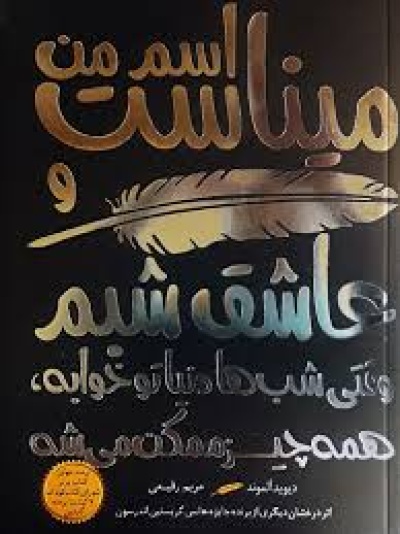 اسم من
میناست
و
عاشق شبم
وقتی شب‌ها دنیا تو خوابه،
همه چیز ممکت می‌شه
دیوید آلموند مریم رفیعی
اثر درخشان دیگری از برنده جایزه هانس کریستین اندرسون